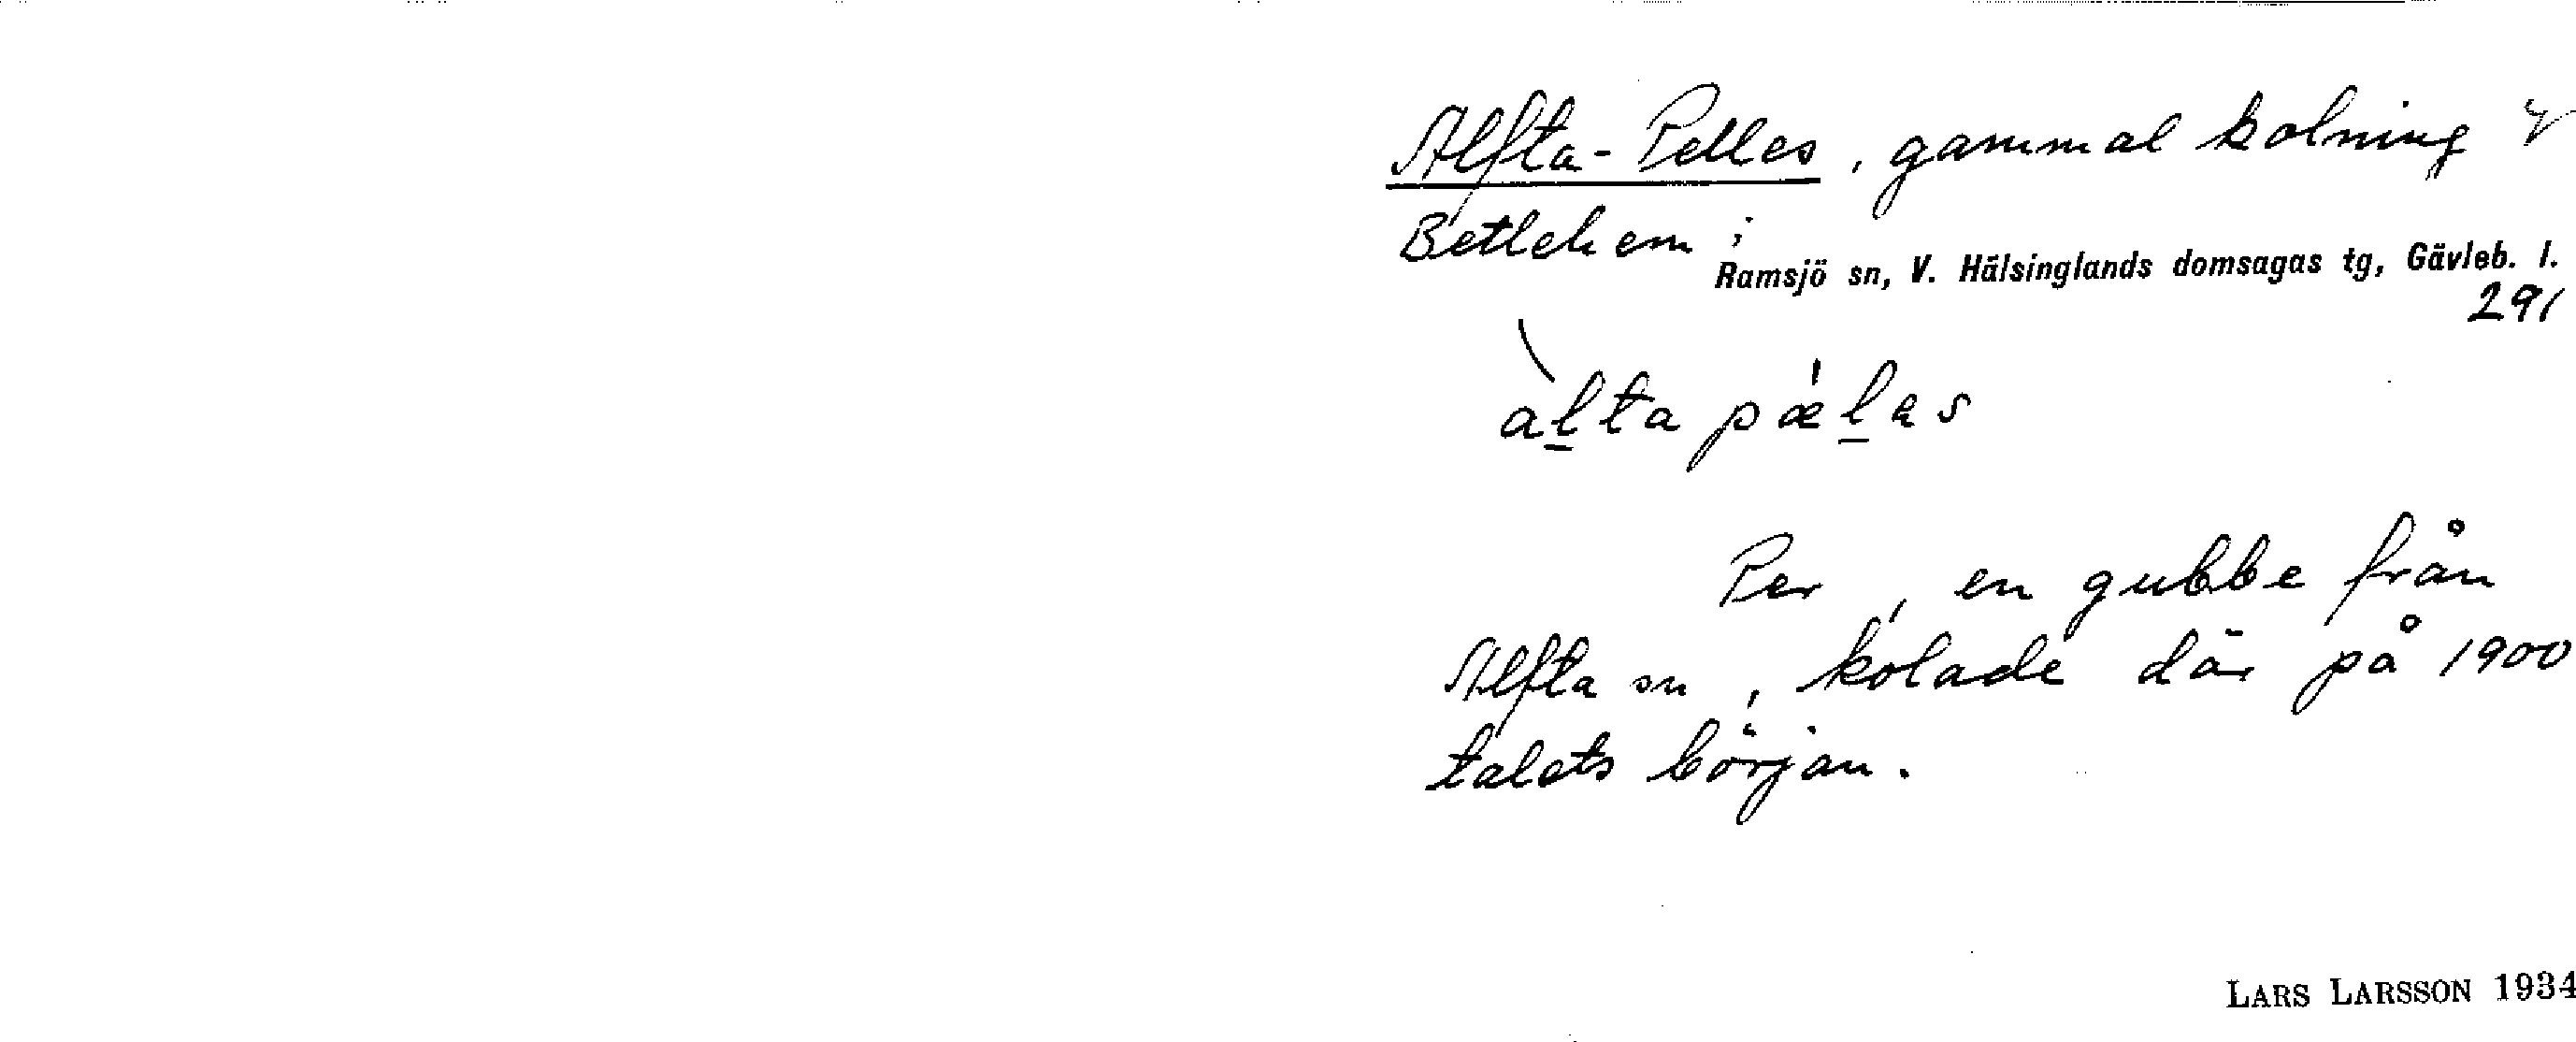 Alfta-Pelles, gammal kolning V
Betlehem i
Ramsjö sn, V. Hälsinglands domsagas tg, Gävleb. l.
291
alta pælas
Per, en gubbe från
Alfta sn, kolade där på 1900
talets början.
LARS LARSSON 1934